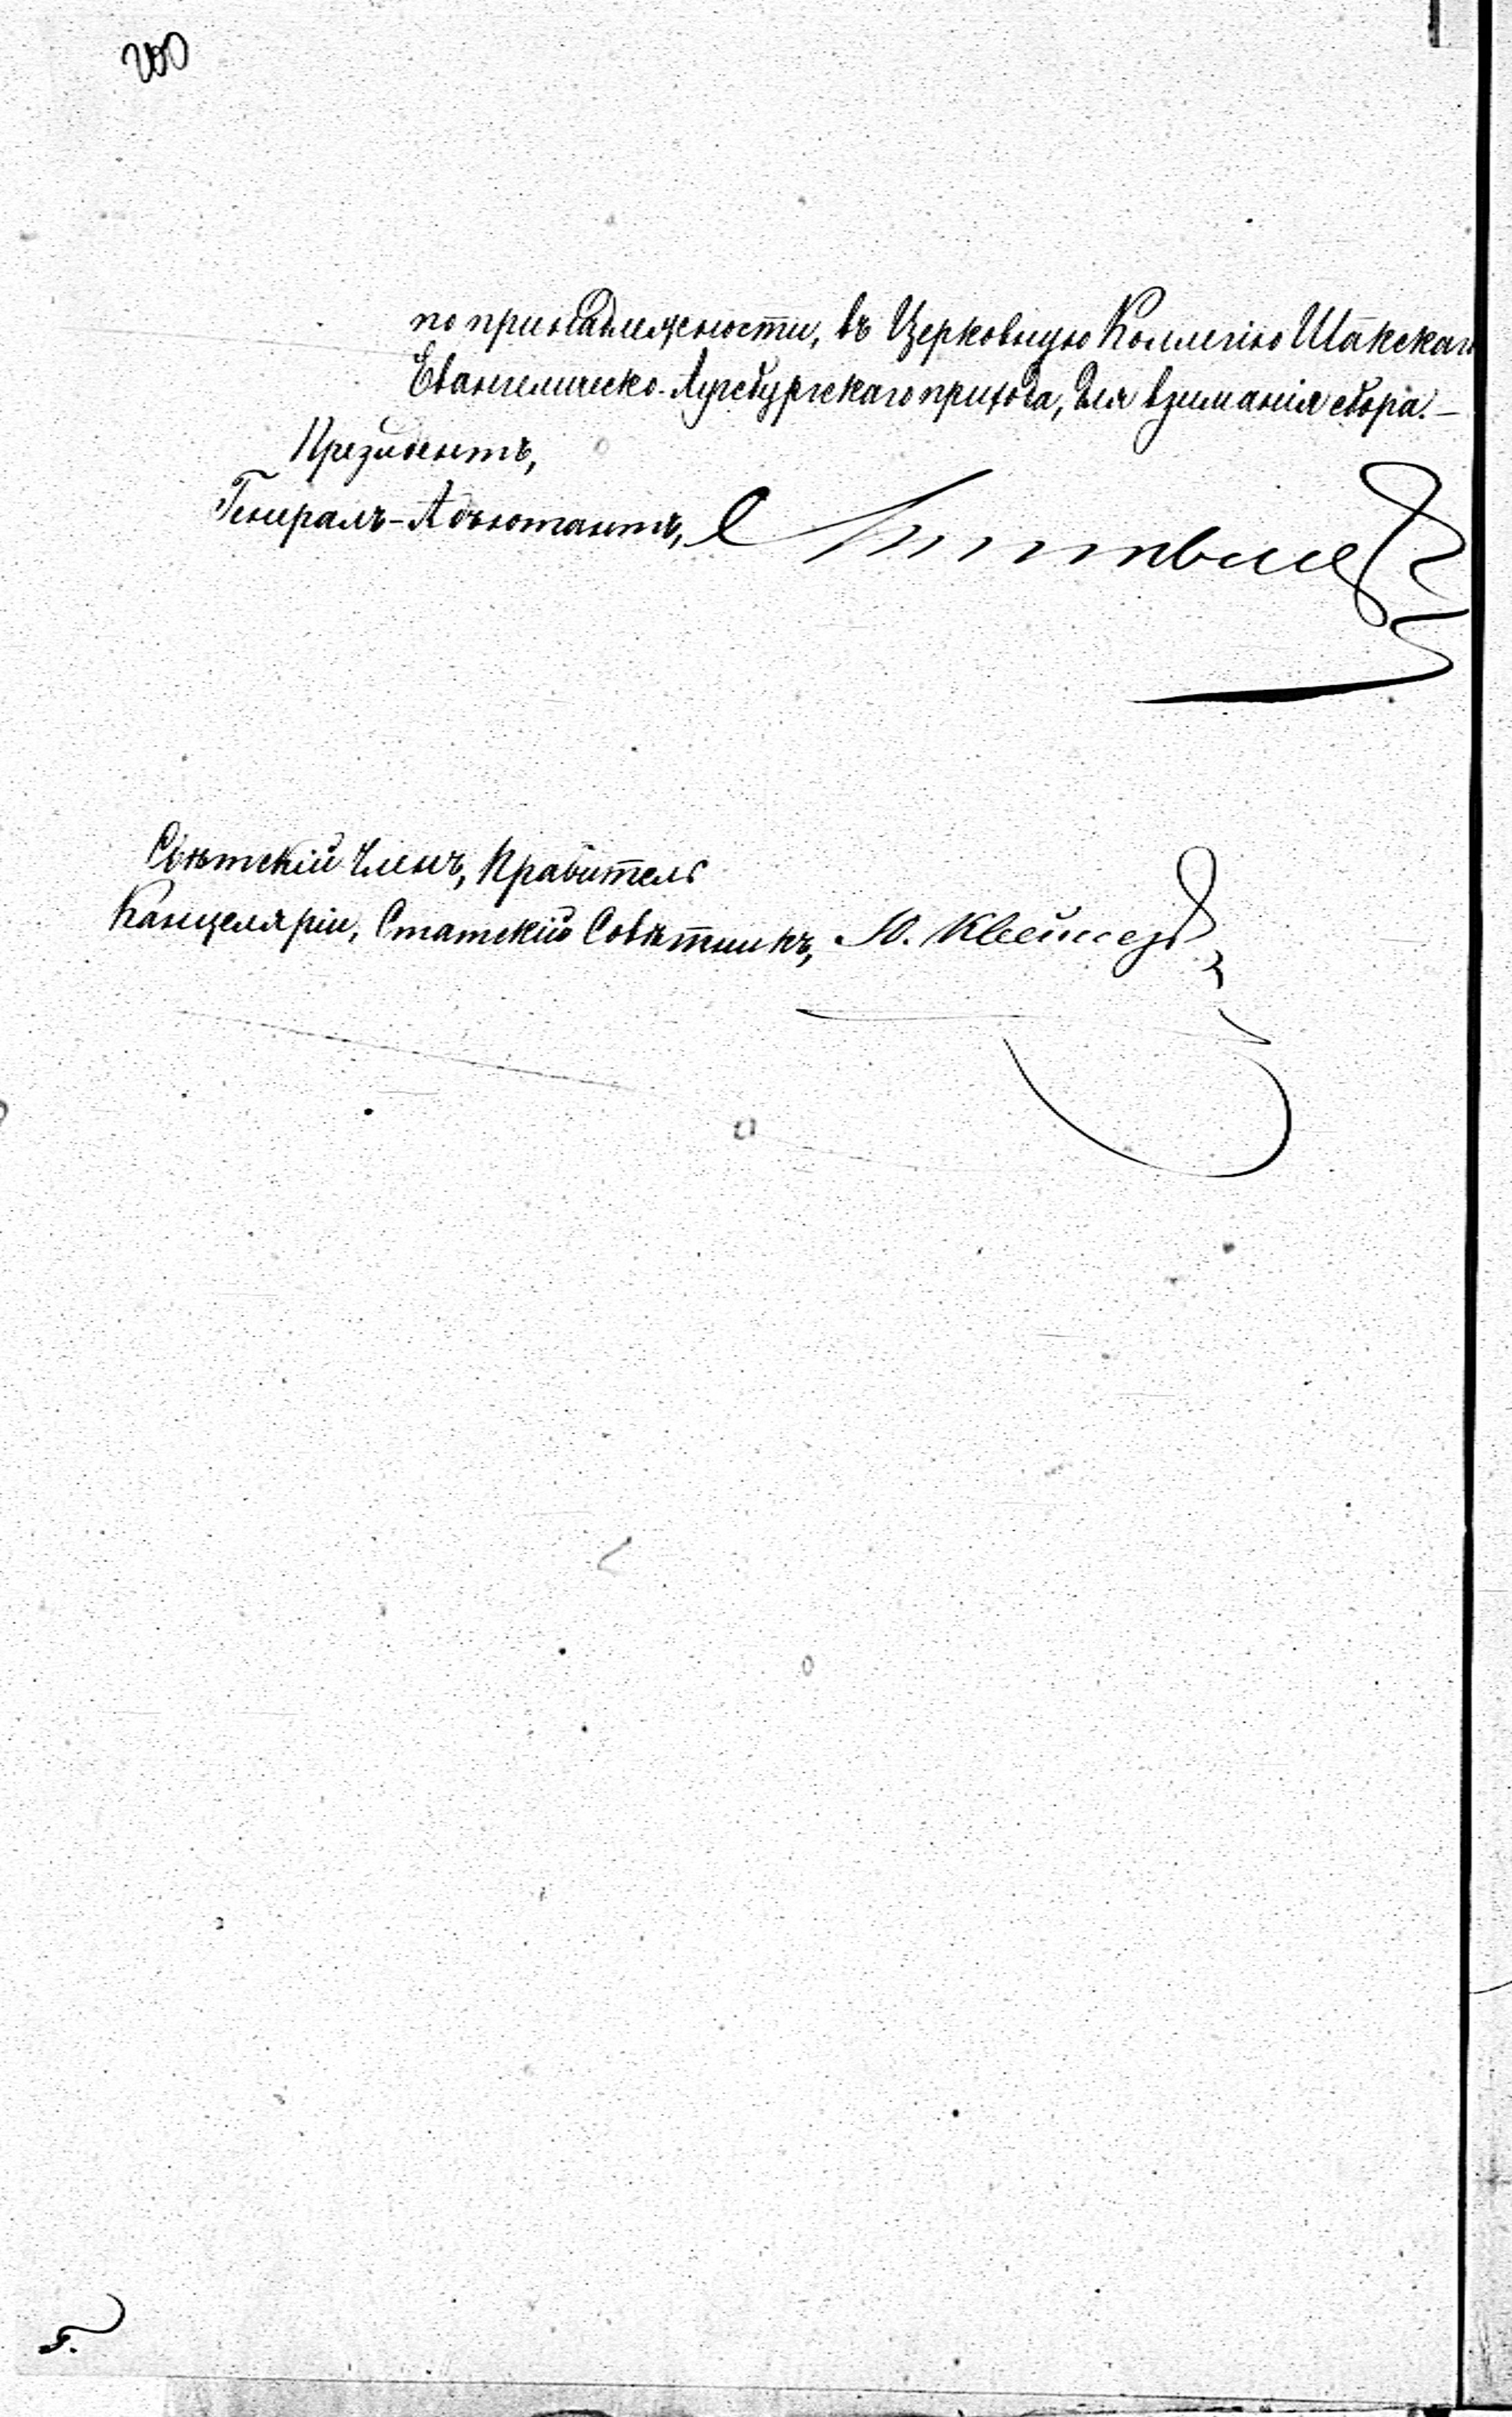 200
по принадлежности, въ Церковную Коллегію Шакскаго
Евангелическо-Аугсбургскаго прихода, для взиманія сбора.—
Президентъ,
Генералъ-Адъютантъ,
Свѣтскій Членъ, Правитель
Канцеляріи, Статскій Совѣтникъ, Ю.